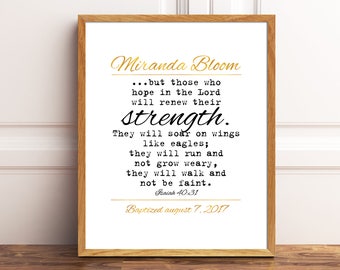 Miranda Bloom
...but those who
hope in the Lord
will renew their
strength.
They will soar on wings
like eagles;
they will run and
not grow weary,
they will walk and
not be faint.
Isaiah 40:31
Baptized august 7, 2017